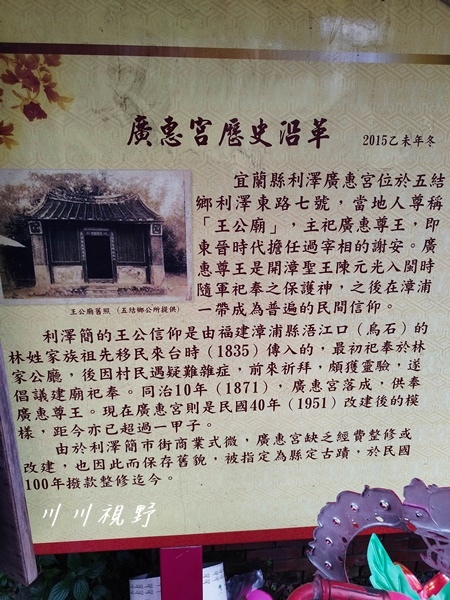 廣惠宮歷史沿革
2015乙未年冬
宜蘭縣利澤廣惠宮位於五結
鄉利澤東路七號，當地人尊稱
「王公廟」，主祀廣惠尊王，即
東晉時代擔任過宰相的謝安。廣
惠尊王是開漳聖王陳元光入閩時
隨軍祀奉之保護神，之後在漳浦
一帶成為普遍的民間信仰。
王公廟舊照（五結鄉公所提供）
利澤簡的王公信仰是由福建漳浦縣浯江口（烏石）的
林姓家族祖先移民來台時（1835）傳入的，最初祀奉於林
家公廳，後因村民遇疑難雜症，前來祈拜，頗獲靈驗，遂
倡議建廟祀奉。同治10年（1871），廣惠宮落成，供奉
廣惠尊王。現在廣惠宮則是民國40年（1951）改建後的模
樣，距今亦已超過一甲子。
由於利澤簡市街商業式微，廣惠宮缺乏經費整修或
改建，也因此而保存舊貌，被指定為縣定古蹟，於民國
100年撥款整修迄今。
川川視野